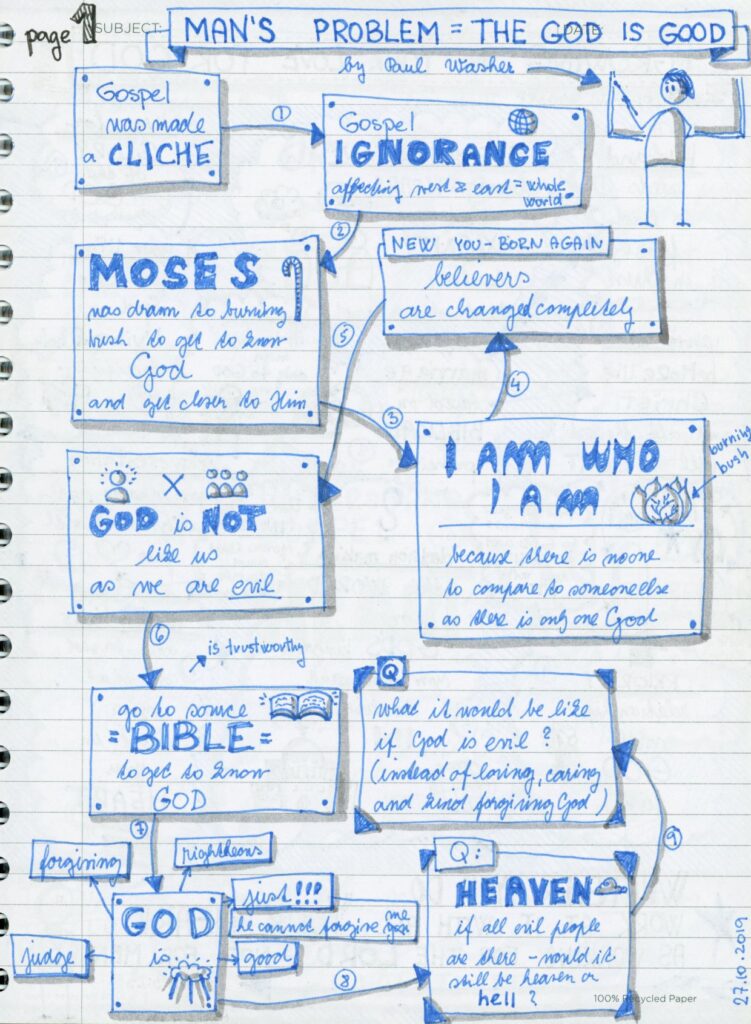 page 1
SUBJECT:
DATE:
MAN'S PROBLEM = THE GOD IS GOOD
by Paul Washer
Gospel
was made
a CLICHE
1
Gospel
IGNORANCE
affecting west & east = whole
world
2
MOSES
was drawn to burning
bush to get to know
God
and get closer to Him
3
I AM WHO
I AM
burning
bush
because there is noone
to compare to someoneelse
as there is only one God
4
NEW YOU - BORN AGAIN
believers
are changed completely
5
X
GOD is NOT
like us
as we are evil
6
is trustworthy
go to source
= BIBLE =
to get to know
GOD
7
GOD
is
forgiving
righteous
just!!!
he cannot forgive me
good
judge
8
Q:
HEAVEN
if all evil people
are there - would it
still be heaven or
hell?
9
Q
what it would be like
if God is evil?
(instead of loving, caring
and kind forgiving God)
27.10.2019
100% Recycled Paper